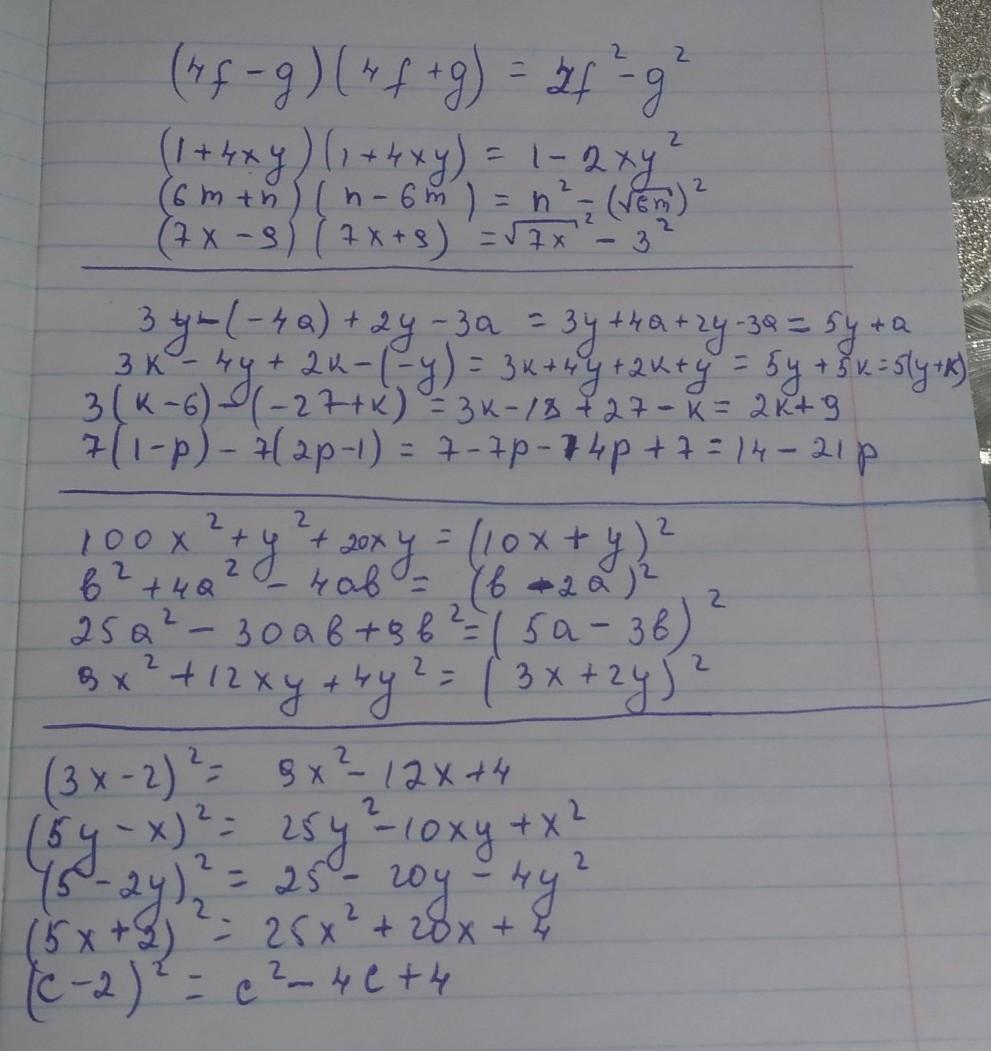 (4f - g)(4f + g) = 2f² - g²
(1 + 4xy)(1 + 4xy) = 1 - 2xy²
(6m + n)(n - 6m) = n² - (√6m)²
(7x - 9)(7x + 9) = √7x² - 3²
3y - (-4a) + 2y - 3a = 3y + 4a + 2y - 3a = 5y + a
3к - 4y + 2к - (-y) = 3к + 4y + 2к + y = 5y + 5к = 5(y + к)
3(к - 6) - (-27 + к) = 3к - 18 + 27 - к = 2к + 9
7(1 - p) - 7(2p - 1) = 7 - 7p - 14p + 7 = 14 - 21p
100x² + y² + 20xy = (10x + y)²
в² + 4a² - 4aв = (в - 2a)²
25a² - 30aв + 9в² = (5a - 3в)²
9x² + 12xy + 4y² = (3x + 2y)²
(3x - 2)² = 9x² - 12x + 4
(5y - x)² = 25y² - 10xy + x²
(5 - 2y)² = 25 - 20y - 4y²
(5x + 2)² = 25x² + 20x + 4
(c - 2)² = c² - 4c + 4